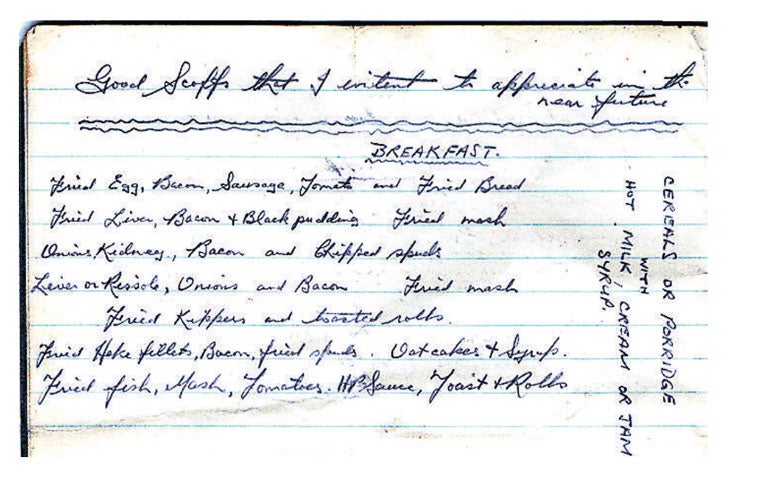 Good Scoffs that I intent to appreciate in the
near future
BREAKFAST.
Fried Egg, Bacon, Sausage, Tomato and Fried Bread
Fried Liver, Bacon + Black pudding Fried mash
Onions, Kidney, Bacon and Chipped spuds
Liver or Rissole, Onions and Bacon Fried mash
Fried Kippers and toasted rolls.
Fried Hake fillets, Bacon, fried spuds. Oatcakes + Syrup.
Fried fish, Mash, Tomatoes. HP Sauce, Toast + Rolls
CEREALS OR PORRIDGE
WITH
HOT MILK / CREAM OR JAM
SYRUP.